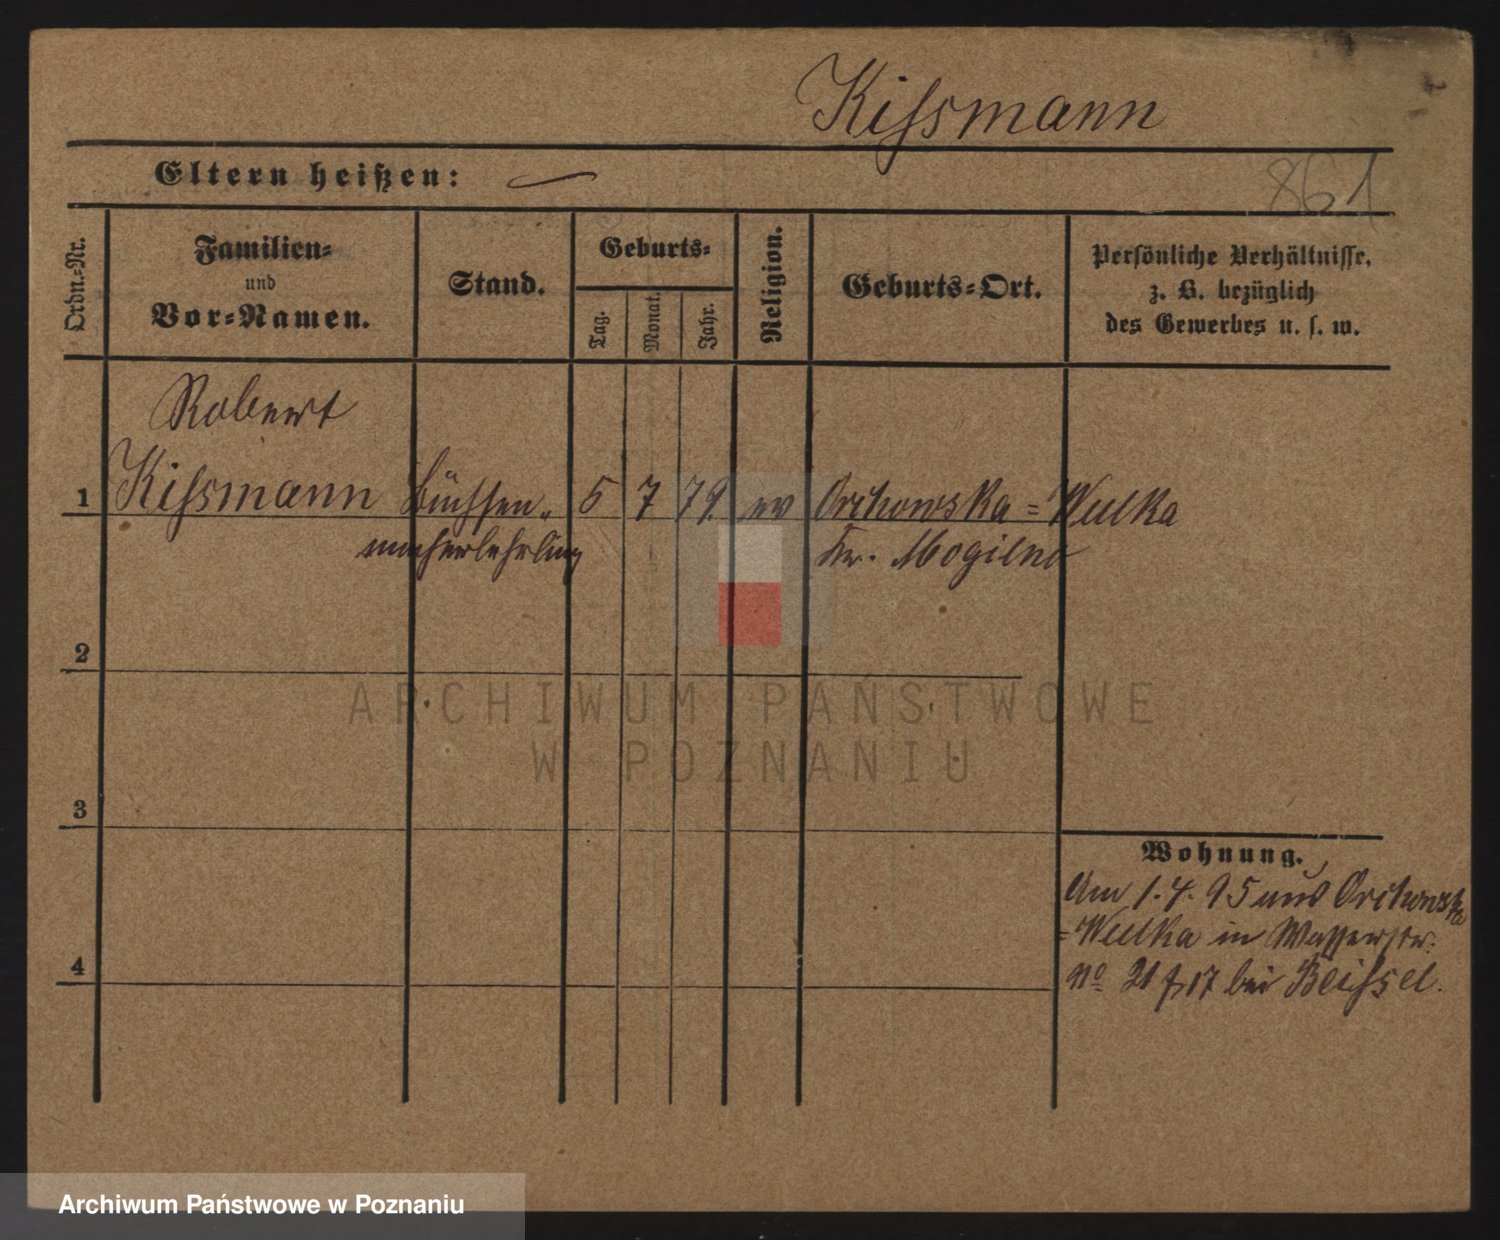 Kissmann
Eltern heißen:
861
Ordn.-Nr.
Familien-
und
Vor-Namen.
Stand.
Geburts-
Tag.
Monat.
Jahr.
Religion.
Geburts-Ort.
Persönliche Verhältnisse,
z. B. bezüglich
des Gewerbes u. s. w.
Robert
1 Kissmann Büchsen- 5 7 79. ev Orchowska-Wulka
macherlehrling Kr. Mogilno
2
3
4
Wohnung.
Am 1.4.95 aus Orchowska
-Wulka in Wasserstr.
No 21 17 bei Bleissel.
ARCHIWUM PAŃSTWOWE
W POZNANIU
Archiwum Państwowe w Poznaniu